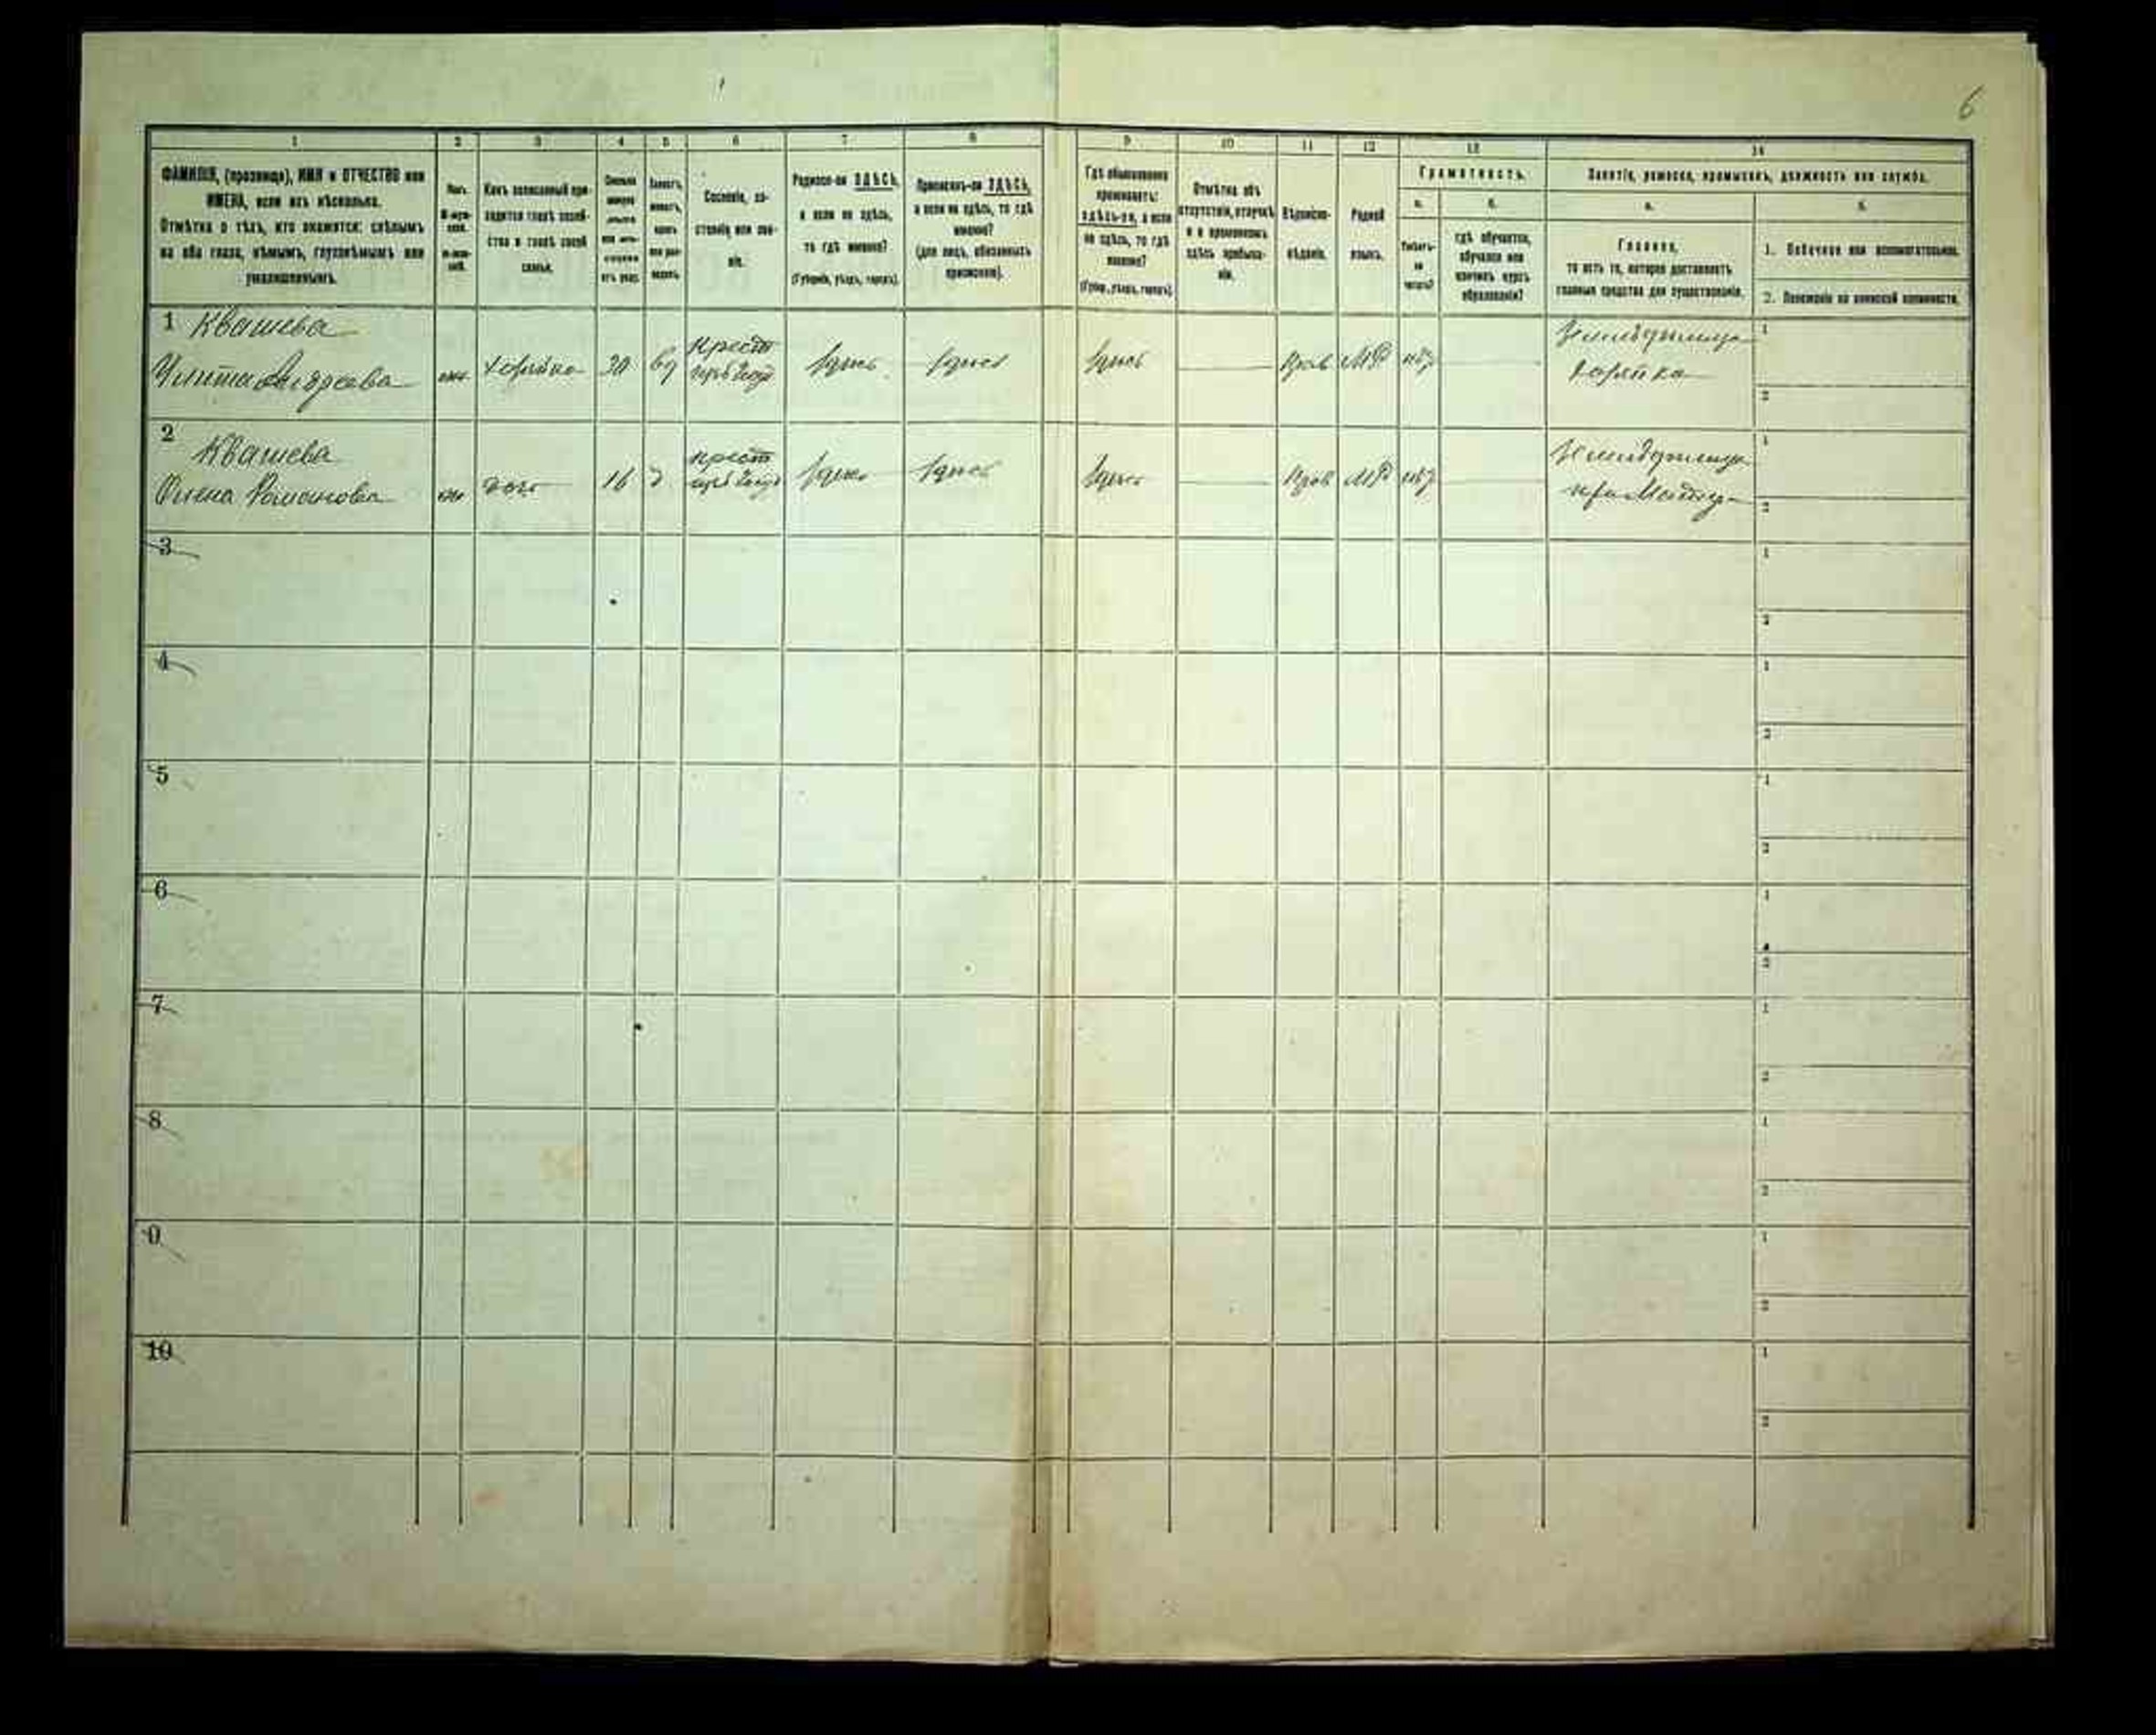 6
1 2 3 4 5 6 7 8 9 10 11 12 13 14
ФАМИЛІЯ, (прозвище), ИМЯ и ОТЧЕСТВО или
ИМЕНА, если ихъ нѣсколько.
Отмѣтка о тѣхъ, кто окажется: слѣпымъ
на оба глаза, нѣмымъ, глухонѣмымъ или
умалишеннымъ.
Какъ записанный при-
ходится главѣ хозяй-
ства и главѣ своей
семьи.
Сословіе, со-
стояніе или зва-
ніе.
Родился-ли ЗДѢСЬ,
а если не здѣсь,
то гдѣ именно?
(Губернія, уѣздъ, городъ).
Приписанъ-ли ЗДѢСЬ,
а если не здѣсь, то гдѣ
именно?
(для лицъ, обязанныхъ
припискою).
Гдѣ обыкновенно
проживаетъ:
здѣсь-ли, а если
не здѣсь, то гдѣ
именно?
(Губер., уѣздъ, городъ).
Отмѣтка объ
отсутствіи, отлучкѣ
и о временномъ
здѣсь пребыва-
ніи.
Вѣроиспо-
вѣданіе.
Родной
языкъ.
Грамотность.
а.
Умѣетъ-
ли
читать?
б.
гдѣ обучается,
обучался или
кончилъ курсъ
образованія?
Занятіе, ремесло, промыселъ, должность или служба.
а.
Главное,
то есть то, которое доставляетъ
главныя средства для существованія.
б.
1. Побочное или вспомогательное.
2. Положеніе по воинской повинности.
1 Квашева
Улита Андреева
30
Крест
здѣсь здѣсь здѣсь
Прав МР нѣт
1
2
2 Квашева
Олена Романова
дочь 16 д
крест
здѣсь здѣсь здѣсь
Прав МР нѣт
при Матери
1
2
3
1
2
4
1
2
5
1
2
6
1
2
7
1
2
8
1
2
9
1
2
10
1
2